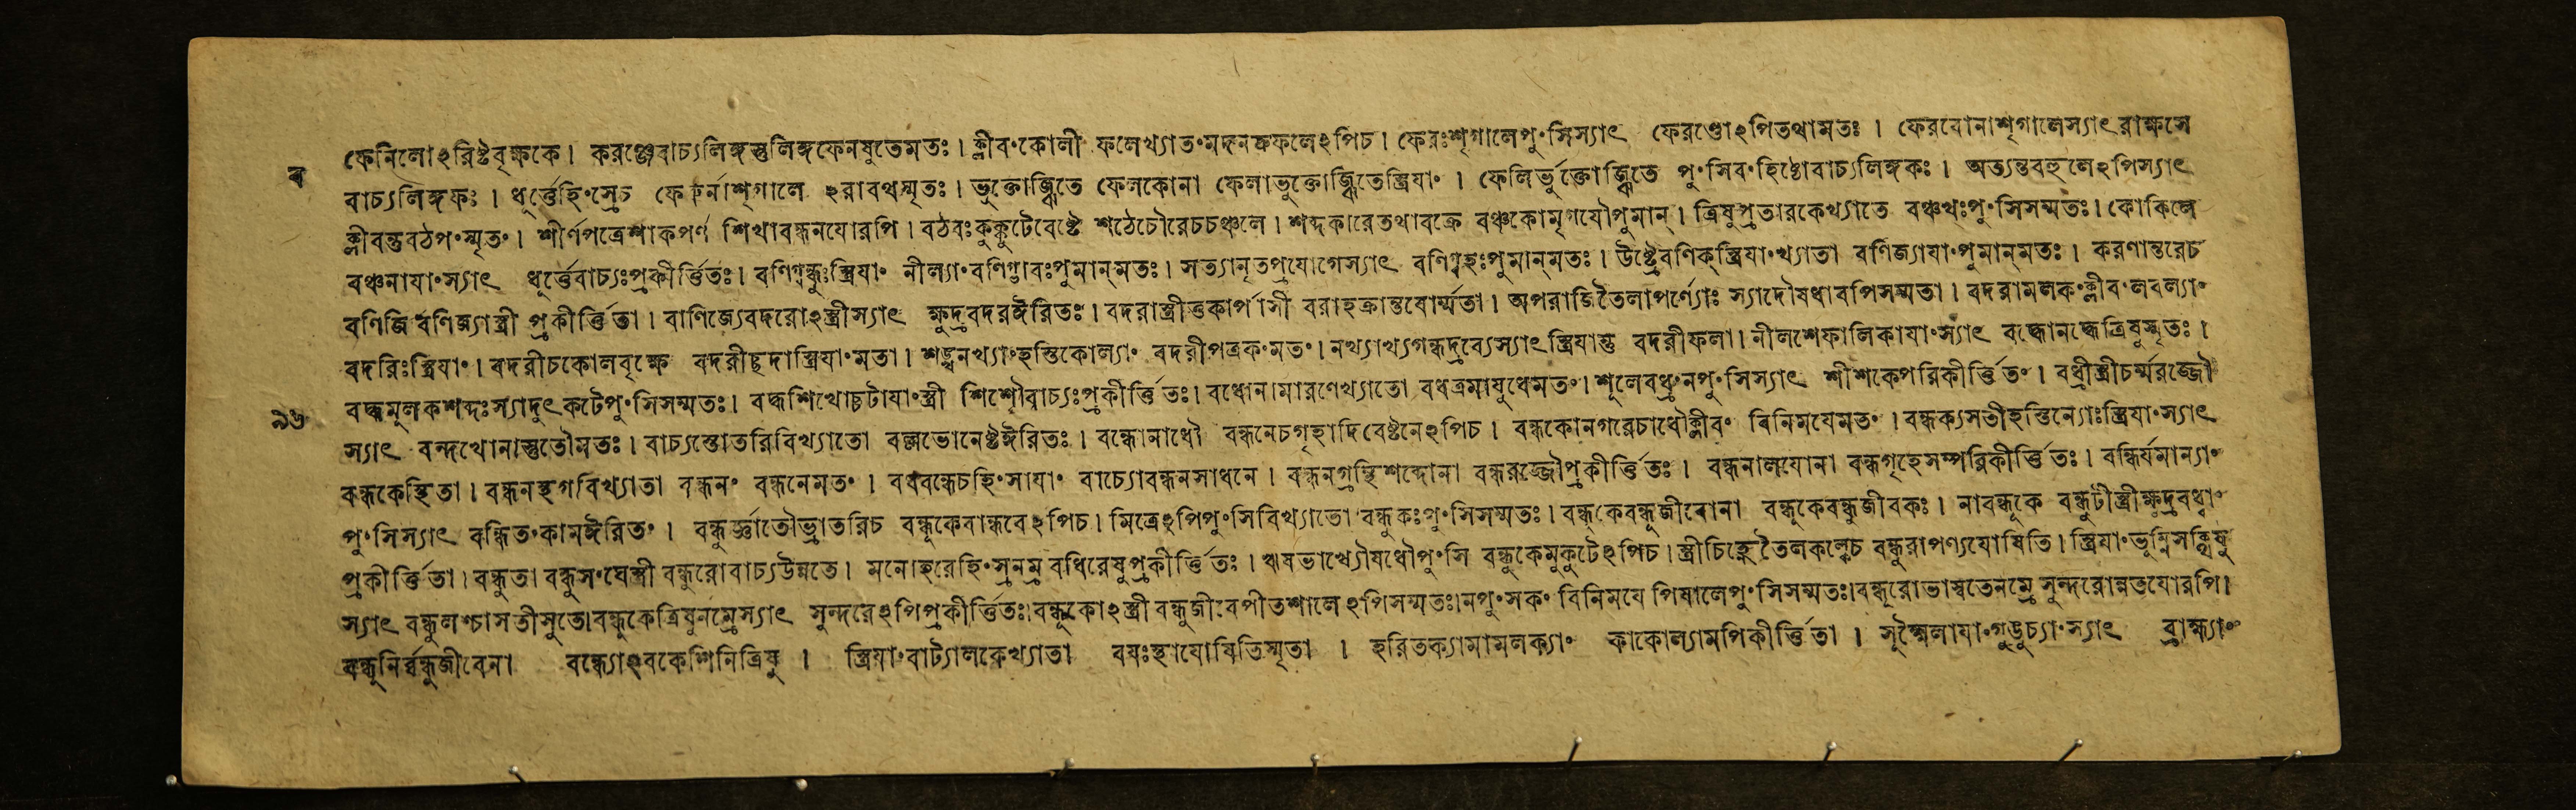 ফেনিলোঽরিষ্টবৃক্ষকে। করঞ্জেবাচ্যলিঙ্গস্তুলিঙ্গফেনষুতেমতঃ। ক্লীবং কোলী ফলেখ্যাতং মদনকফলেঽপিচ। ফেরঃশৃগালেপুংসিস্যাৎ ফেরণ্ডোঽপিতথামতঃ। ফেরবোনাশৃগালেস্যাৎরাক্ষসে
ব
বাচ্যলিঙ্গকঃ। ধূর্ত্তেহিংস্রেচ ফেরুর্নাশৃগালে ঽরাবথস্মৃতঃ। ভুক্তোজ্ঝিতে ফেলকোনা ফেলাভুক্তোজ্ঝিতেস্ত্রিযাং। ফেলির্ভুক্তোজ্ঝিতে পুংসিবংহিষ্ঠোবাচ্যলিঙ্গকঃ। অত্যন্তবহুলেঽপিস্যাৎ
ক্লীবন্তুবঠপংস্মৃতং। শীর্ণপত্রেশাকপর্ণ শিখাবন্ধনযোরপি। বঠবঃকুক্কুটেবেষ্টে শঠেচৌরেচচঞ্চলে। শব্দকারেতথাবক্রে বঞ্চকোমৃগযৌপুমান্। ত্রিষুপ্রতারকেখ্যাতে বঞ্চথঃপুংসিসম্মতঃ। কোকিলে
বঞ্চনাযাংস্যাৎ ধূর্ত্তেবাচ্যঃপ্রকীর্ত্তিতঃ। বণিগ্বন্ধুঃস্ত্রিযাং নীল্যাংবণিগ্ভাবঃপুমান্মতঃ। সত্যানৃতপ্রযোগেস্যাৎ বণিগ্বহঃপুমান্মতঃ। উষ্ট্রেবণিক্স্ত্রিযাংখ্যাতা বণিজ্যাযাংপুমান্মতঃ। করণান্তরেচ
বণিজি র্বণিজ্যাস্ত্রী প্রকীর্ত্তিতা। বাণিজ্যেবদরোঽস্ত্রীস্যাৎ ক্ষুদ্রবদরঈরিতঃ। বদরাস্ত্রীতুকার্পাসী বরাহক্রান্তবোর্ম্মতা। অপরাজিতৈলাপর্ণ্যোঃ স্যাদৌষধাবপিসম্মতা। বদরামলকংক্লীবংলবল্যাং
বদরিঃস্ত্রিযাং। বদরীচকোলবৃক্ষে বদরীছদাস্ত্রিযাংমতা। শঙ্খনখ্যাংহস্তিকোল্যাং বদরীপত্রকংমতং। নখ্যাখ্যগন্ধদ্রব্যেস্যাৎস্ত্রিযান্তু বদরীফলা। নীলশেফালিকাযাংস্যাৎ বদ্ধোনদ্ধেত্রিষুস্মৃতঃ।
৯৬
বদ্ধমূলকশব্দঃস্যাদুৎকটেপুংসিসম্মতঃ। বদ্ধশিখোচ্চটাযাংস্ত্রী শিশৌবাচ্যঃপ্রকীর্ত্তিতঃ। বধোনামারণেখ্যাতো বধত্রমাযুধেমতং। শূলেবধ্রংনপুংসিস্যাৎ শীশকেপরিকীর্ত্তিতং। বধ্রীস্ত্রীচর্ম্মরজ্জৌ
স্যাৎ বন্দথোনাস্তুতৌমতঃ। বাচ্যস্তোতরিবিখ্যাতো বল্লভোনেষ্টঈরিতঃ। বন্ধোনাধৌ বন্ধনেচগৃহাদিবেষ্টনেঽপিচ। বন্ধকোনগরেচাধৌক্লীবং বিনিমযেমতং। বন্ধক্যসতীহস্তিন্যোঃস্ত্রিযাংস্যাৎ
বন্ধকেস্থিতা। বন্ধনস্থগবিখ্যাতা বন্ধনং বন্ধনেমতং। বধবন্ধেচহিংসাযাং বাচ্যোবন্ধনসাধনে। বন্ধনগ্রন্থিশব্দোনা বন্ধরজ্জৌপ্রকীর্ত্তিতঃ। বন্ধনালযোনা বন্ধগৃহেসম্পরিকীর্ত্তিতঃ। বন্ধির্যমান্যাং
পুংসিস্যাৎ বন্ধিতংকামঈরিতং। বন্ধুর্জ্ঞাতৌভ্রাতরিচ বন্ধূকেবান্ধবেঽপিচ। মিত্রেঽপিপুংসিবিখ্যাতো বন্ধুকঃপুংসিসম্মতঃ। বন্ধূকেবন্ধুজীবোনা বন্ধুকেবন্ধুজীবকঃ। নাবন্ধূকে বন্ধুটীস্ত্রীক্ষুদ্রবধ্বাং
প্রকীর্ত্তিতা। বন্ধুতা বন্ধুসংঘেস্ত্রী বন্ধুরোবাচ্যউন্নতে। মনোহরেহিংস্রনম্র বধিরেষুপ্রকীর্ত্তিতঃ। ঋষভাখ্যৌষধৌপুংসি বন্ধুকেমুকুটেঽপিচ। স্ত্রীচিহ্নেতৈলকল্কেচ বন্ধুরাপণ্যযোষিতি। স্ত্রিযাংভূম্নিসক্থিষু
স্যাৎ বন্ধুলশ্চাসতীসুতে। বন্ধুকেত্রিষুনম্রেস্যাৎ সুন্দরেঽপিপ্রকীর্ত্তিতঃ। বন্ধূকোঽস্ত্রী বন্ধুজীবেপীতশালেঽপিসম্মতঃ। নপুংসকং বিনিমযে পিষালেপুংসিসম্মতঃ। বন্ধূরোভাস্বতেনম্রে সুন্দরোন্নতযোরপি।
বন্ধূনির্ব্বন্ধুজীবেনা বন্ধ্যোঽবকেশিনিত্রিষু। স্ত্রিযাংবাট্যালকেখ্যাতা বযঃস্থাযোষিতিস্মৃতা। হরিতক্যামামলক্যাং কাকোল্যামপিকীর্ত্তিতা। সূক্ষ্মৈলাযাংগুড়ূচ্যাংস্যাৎ ব্রাহ্ম্যাং